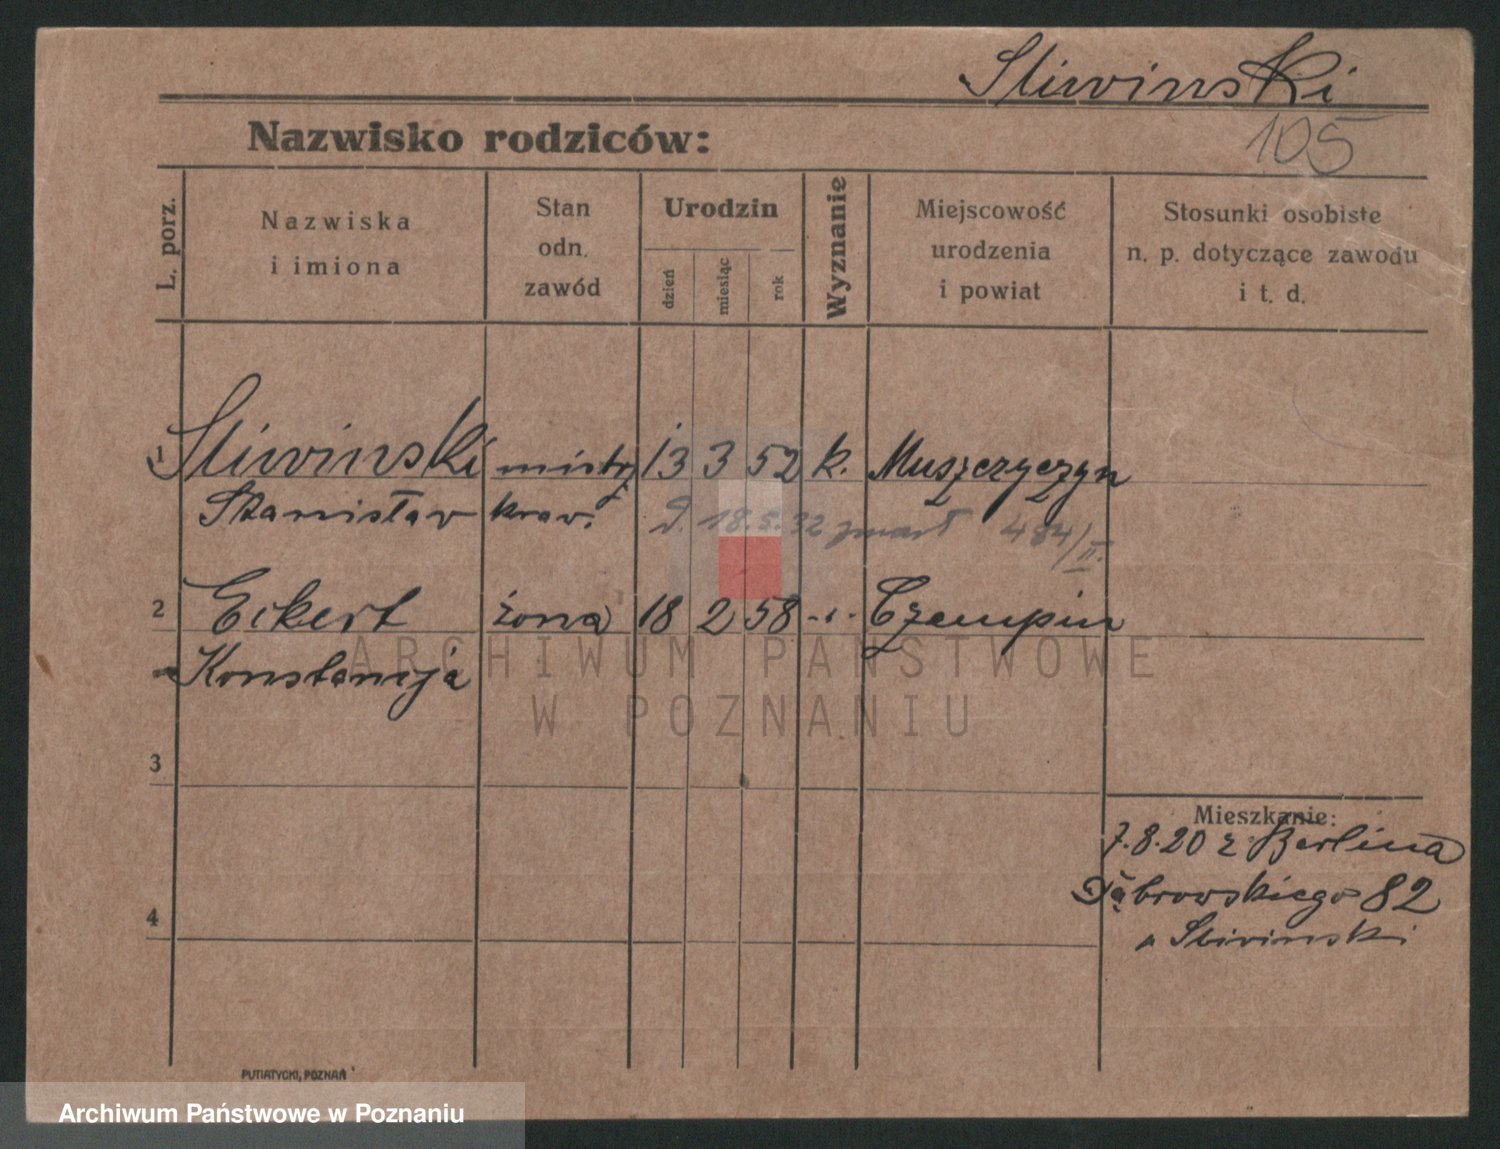 Sliwinski
Nazwisko rodziców:
105
L. porz.
Nazwiska
i imiona
Stan
odn.
zawód
Urodzin
dzień
miesiąc
rok
Wyznanie
Miejscowość
urodzenia
i powiat
Stosunki osobiste
n. p. dotyczące zawodu
i t. d.
1 Sliwinski mistrz 13 3 52 k. Muszczyczyn
Stanisław kraw. 18.5.32 zmarł 484/II.
2 Eckert żona 18 2 58 -"- Czempin
Konstancja
ARCHIWUM PAŃSTWOWE
W POZNANIU
3
Mieszkanie:
7.8.20 z Berlina
Dąbrowskiego 82
Sliwinski
4
PUTIATYCKI, POZNAŃ
Archiwum Państwowe w Poznaniu